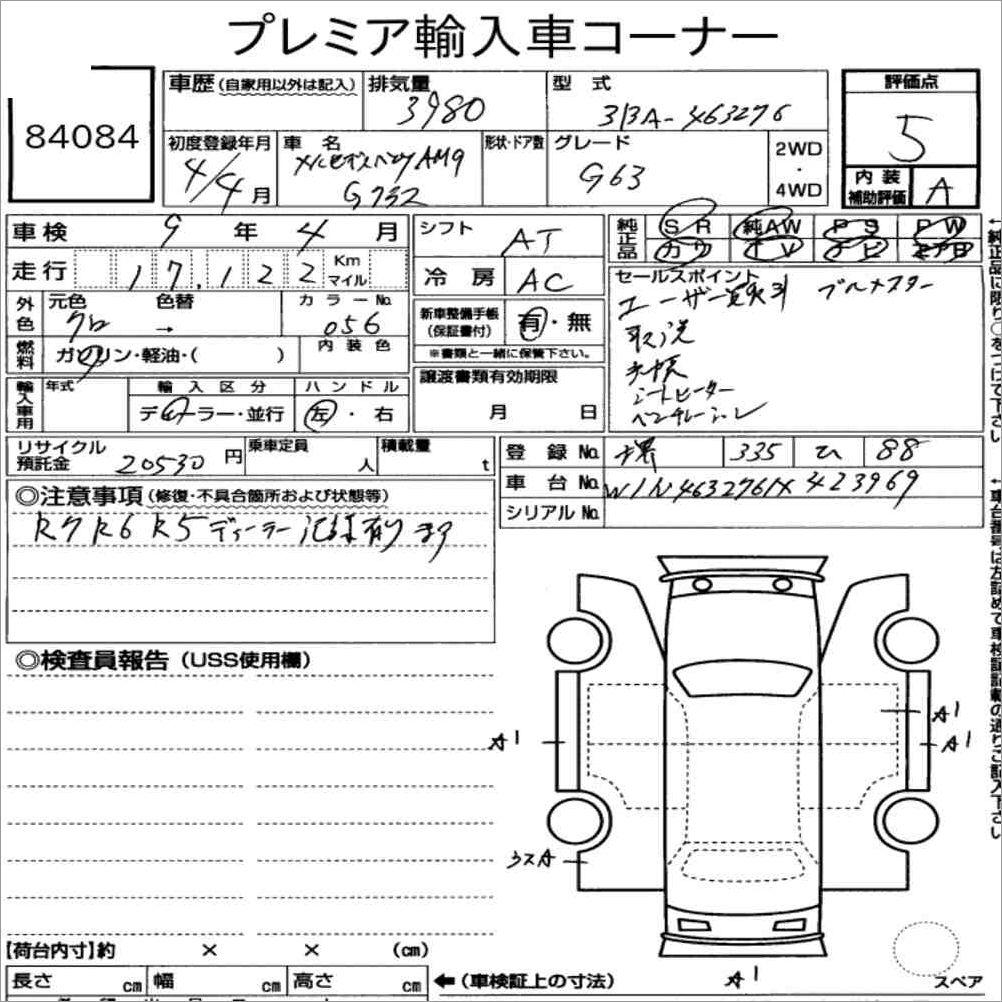 プレミア輸入車コーナー
84084
車歴(自家用以外は記入) 排気量 3980 型式 3BA-463276 評価点 5
初度登録年月 4/4月 車名 メルセデスベンツAMG G732 形状・ドア数 グレード G63 2WD・4WD 内装補助評価 A
車検 9年4月 シフト AT 純正品 SR 純AW PS PW
カワ TV ナビ エアB
走行 17,122 Km マイル 冷房 AC セールスポイント
外色 元色 クロ 色替 → カラーNo. 056 新車整備手帳(保証書付) 有・無 ユーザー買取 ブルメスター
取説
手帳
シートヒーター
ベンチレーション
燃料 ガソリン・軽油・( ) 内装色 ※書類と一緒に保管下さい。
輸入車用 年式 輸入区分 ディーラー・並行 ハンドル 左・右 譲渡書類有効期限 月 日
リサイクル預託金 20530円 乗車定員 人 積載量 t 登録No. 堺 335 ひ 88
車台No. W1N4632761X423969
シリアルNo.
◎注意事項(修復・不具合箇所および状態等)
R7 R6 R5 ディーラー記録有ります
◎検査員報告(USS使用欄)
A1
A1
A1
ウスA
A1
スペア
【荷台内寸】約 × × (cm)
長さ cm 幅 cm 高さ cm ←(車検証上の寸法)
←純正品に限り○をつけて下さい
←車台番号は左詰めで車検証記載の通りご記入下さい